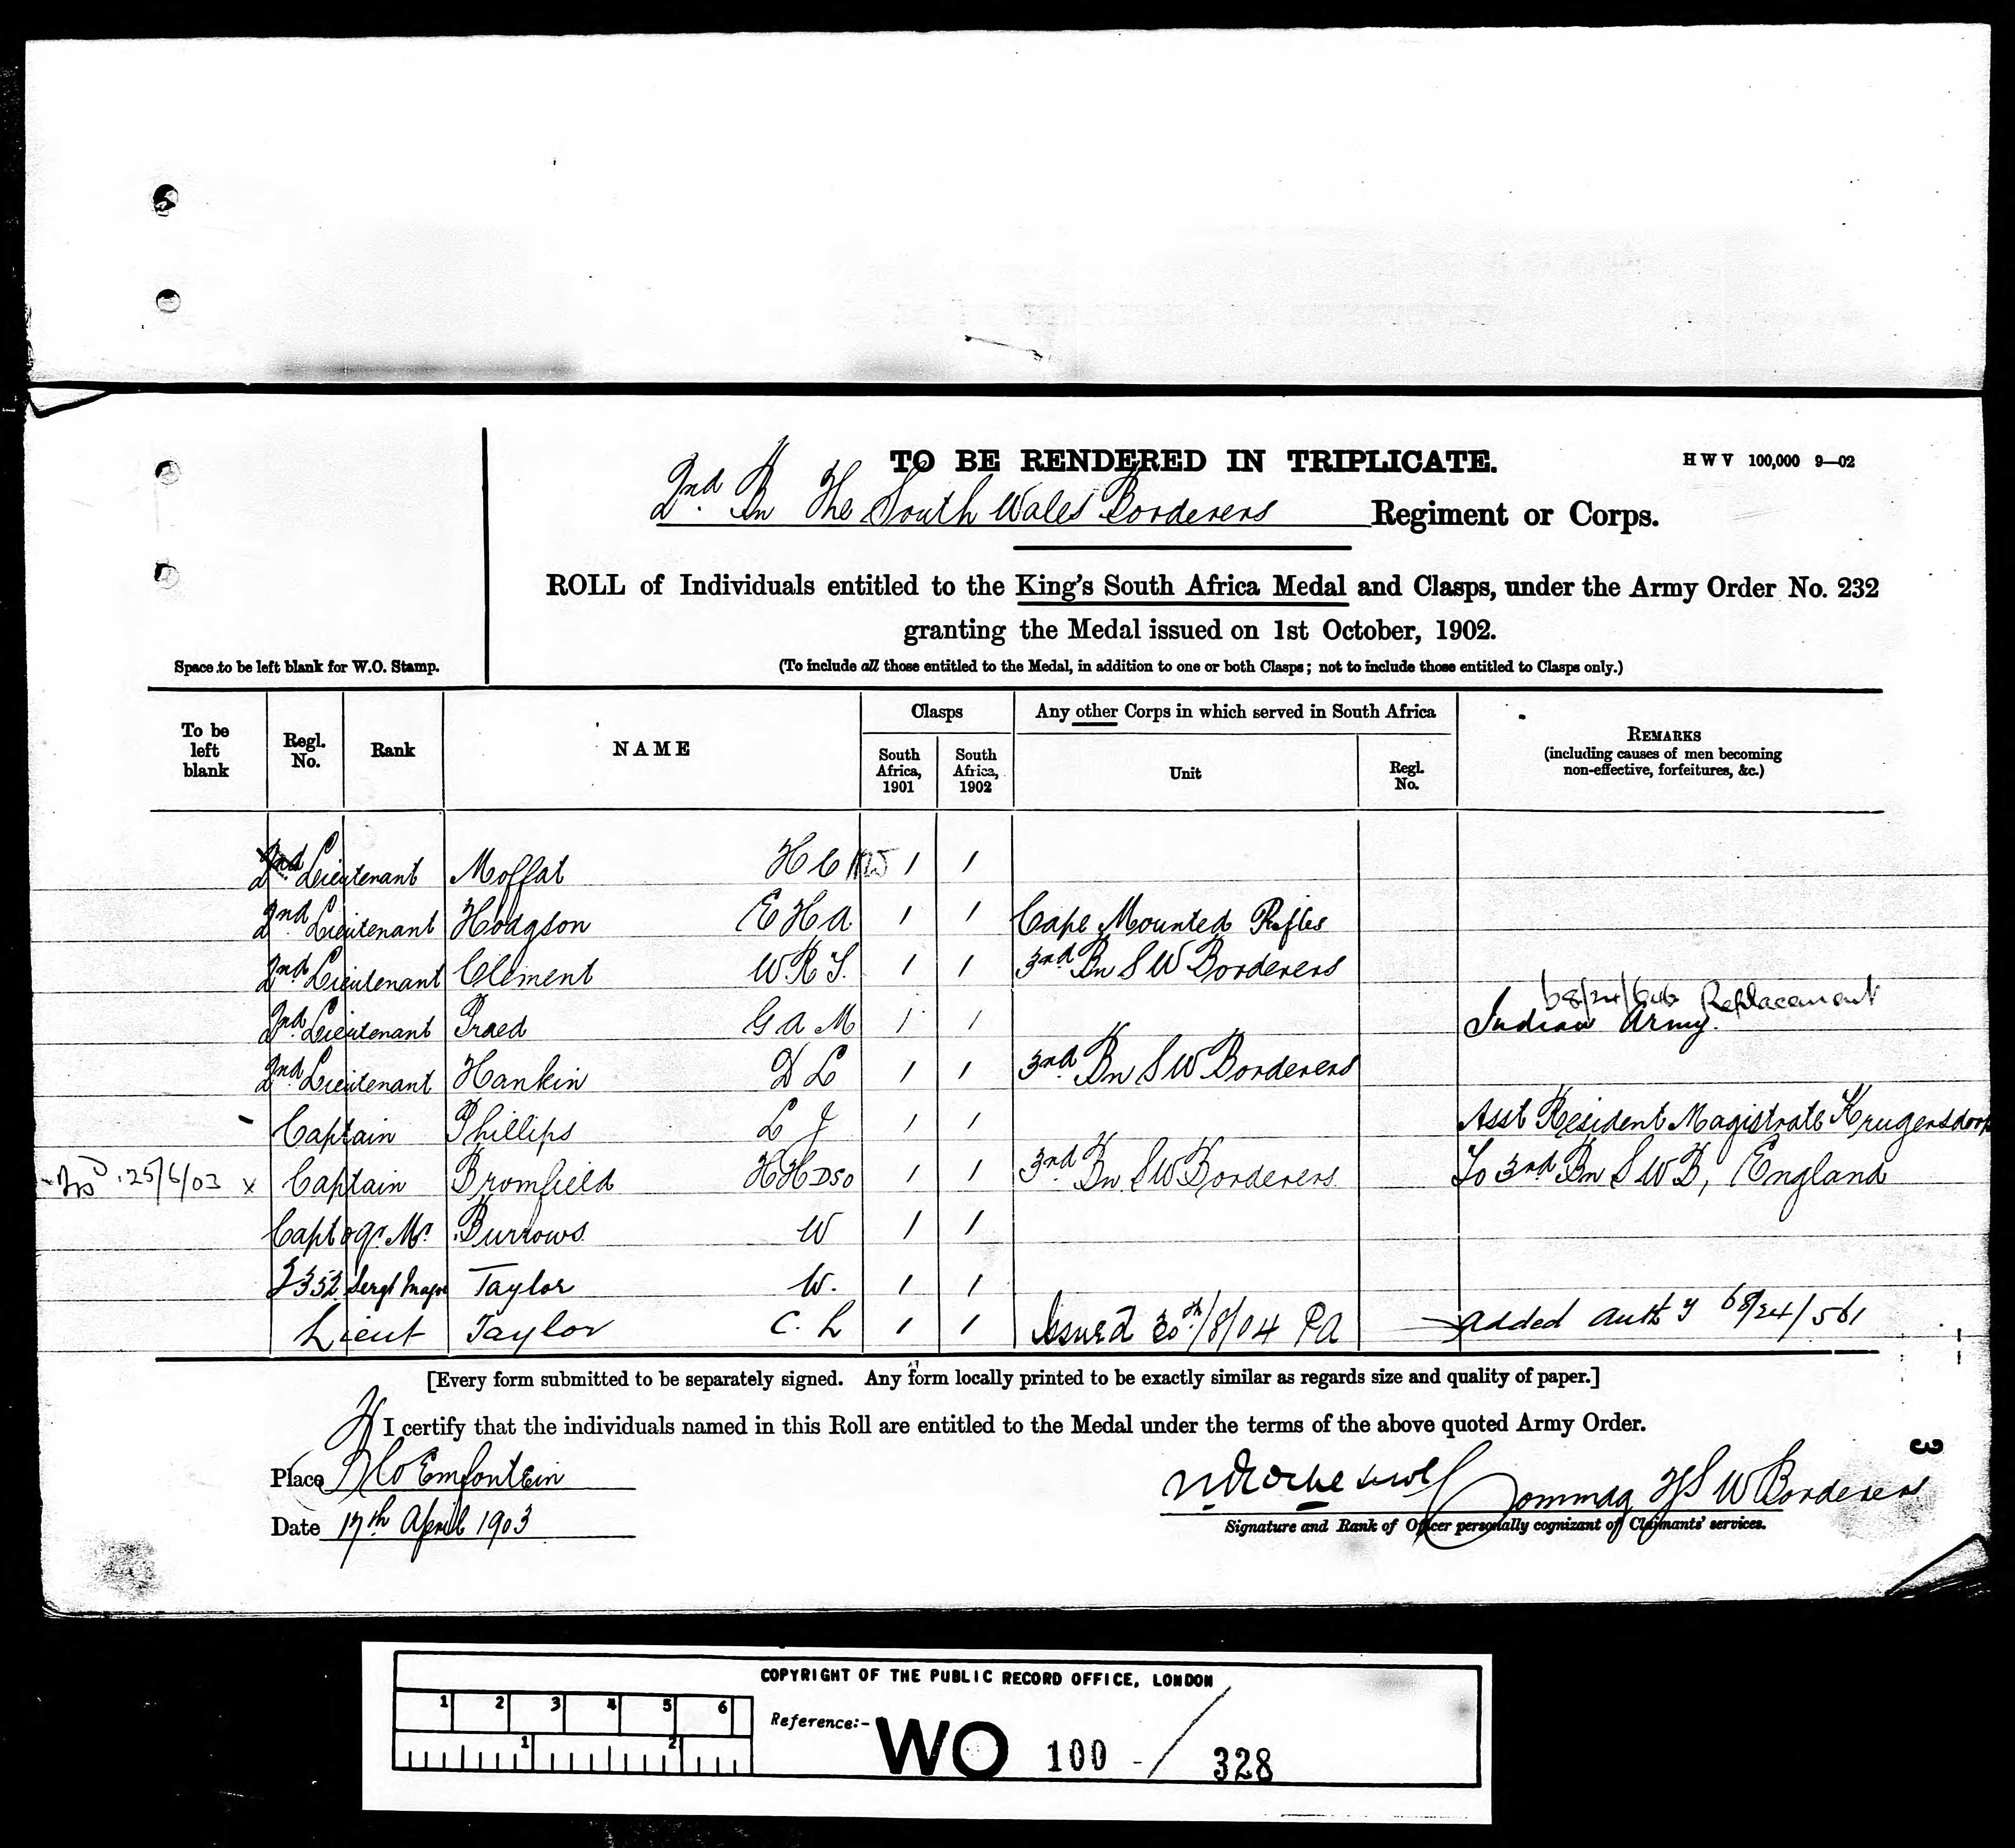 TO BE RENDERED IN TRIPLICATE.
H W V 100,000 9—02
2nd Bn The South Wales Borderers Regiment or Corps.
ROLL of Individuals entitled to the King's South Africa Medal and Clasps, under the Army Order No. 232
granting the Medal issued on 1st October, 1902.
Space to be left blank for W.O. Stamp.
(To include all those entitled to the Medal, in addition to one or both Clasps; not to include those entitled to Clasps only.)
To be left blank
Regl. No.
Rank
NAME
Clasps
South Africa, 1901
South Africa, 1902
Any other Corps in which served in South Africa
Unit
Regl. No.
REMARKS
(including causes of men becoming
non-effective, forfeitures, &c.)
2nd Lieutenant Moffat H C 1 1
2nd Lieutenant Hodgson E H A 1 1 Cape Mounted Rifles
2nd Lieutenant Clement W.R S. 1 1 3rd Bn S W Borderers
68/24/646 Replacement
2nd Lieutenant Praed G A M 1 1 Indian Army.
2nd Lieutenant Hankin D L 1 1 3rd Bn S W Borderers
Captain Phillips L J 1 1 Asst Resident Magistrate Krugersdorp
25/6/03 x Captain Bromfield H H DSO 1 1 3rd Bn S W Borderers To 3rd Bn S W B, England
Capt & Qr. Mr. Burrows W 1 1
Sergt Major Taylor W. 1 1
Lieut Taylor C. L 1 1 Issued 30th/8/04 PA added auth y 68/24/561
[Every form submitted to be separately signed. Any form locally printed to be exactly similar as regards size and quality of paper.]
I certify that the individuals named in this Roll are entitled to the Medal under the terms of the above quoted Army Order.
Place Bloemfontein
Date 17th April 1903
Commdg 2/S W Borderers
Signature and Rank of Officer personally cognizant of Claimants' services.
3
COPYRIGHT OF THE PUBLIC RECORD OFFICE, LONDON
1 2 3 4 5 6
1 2
Reference:- WO 100 / 328